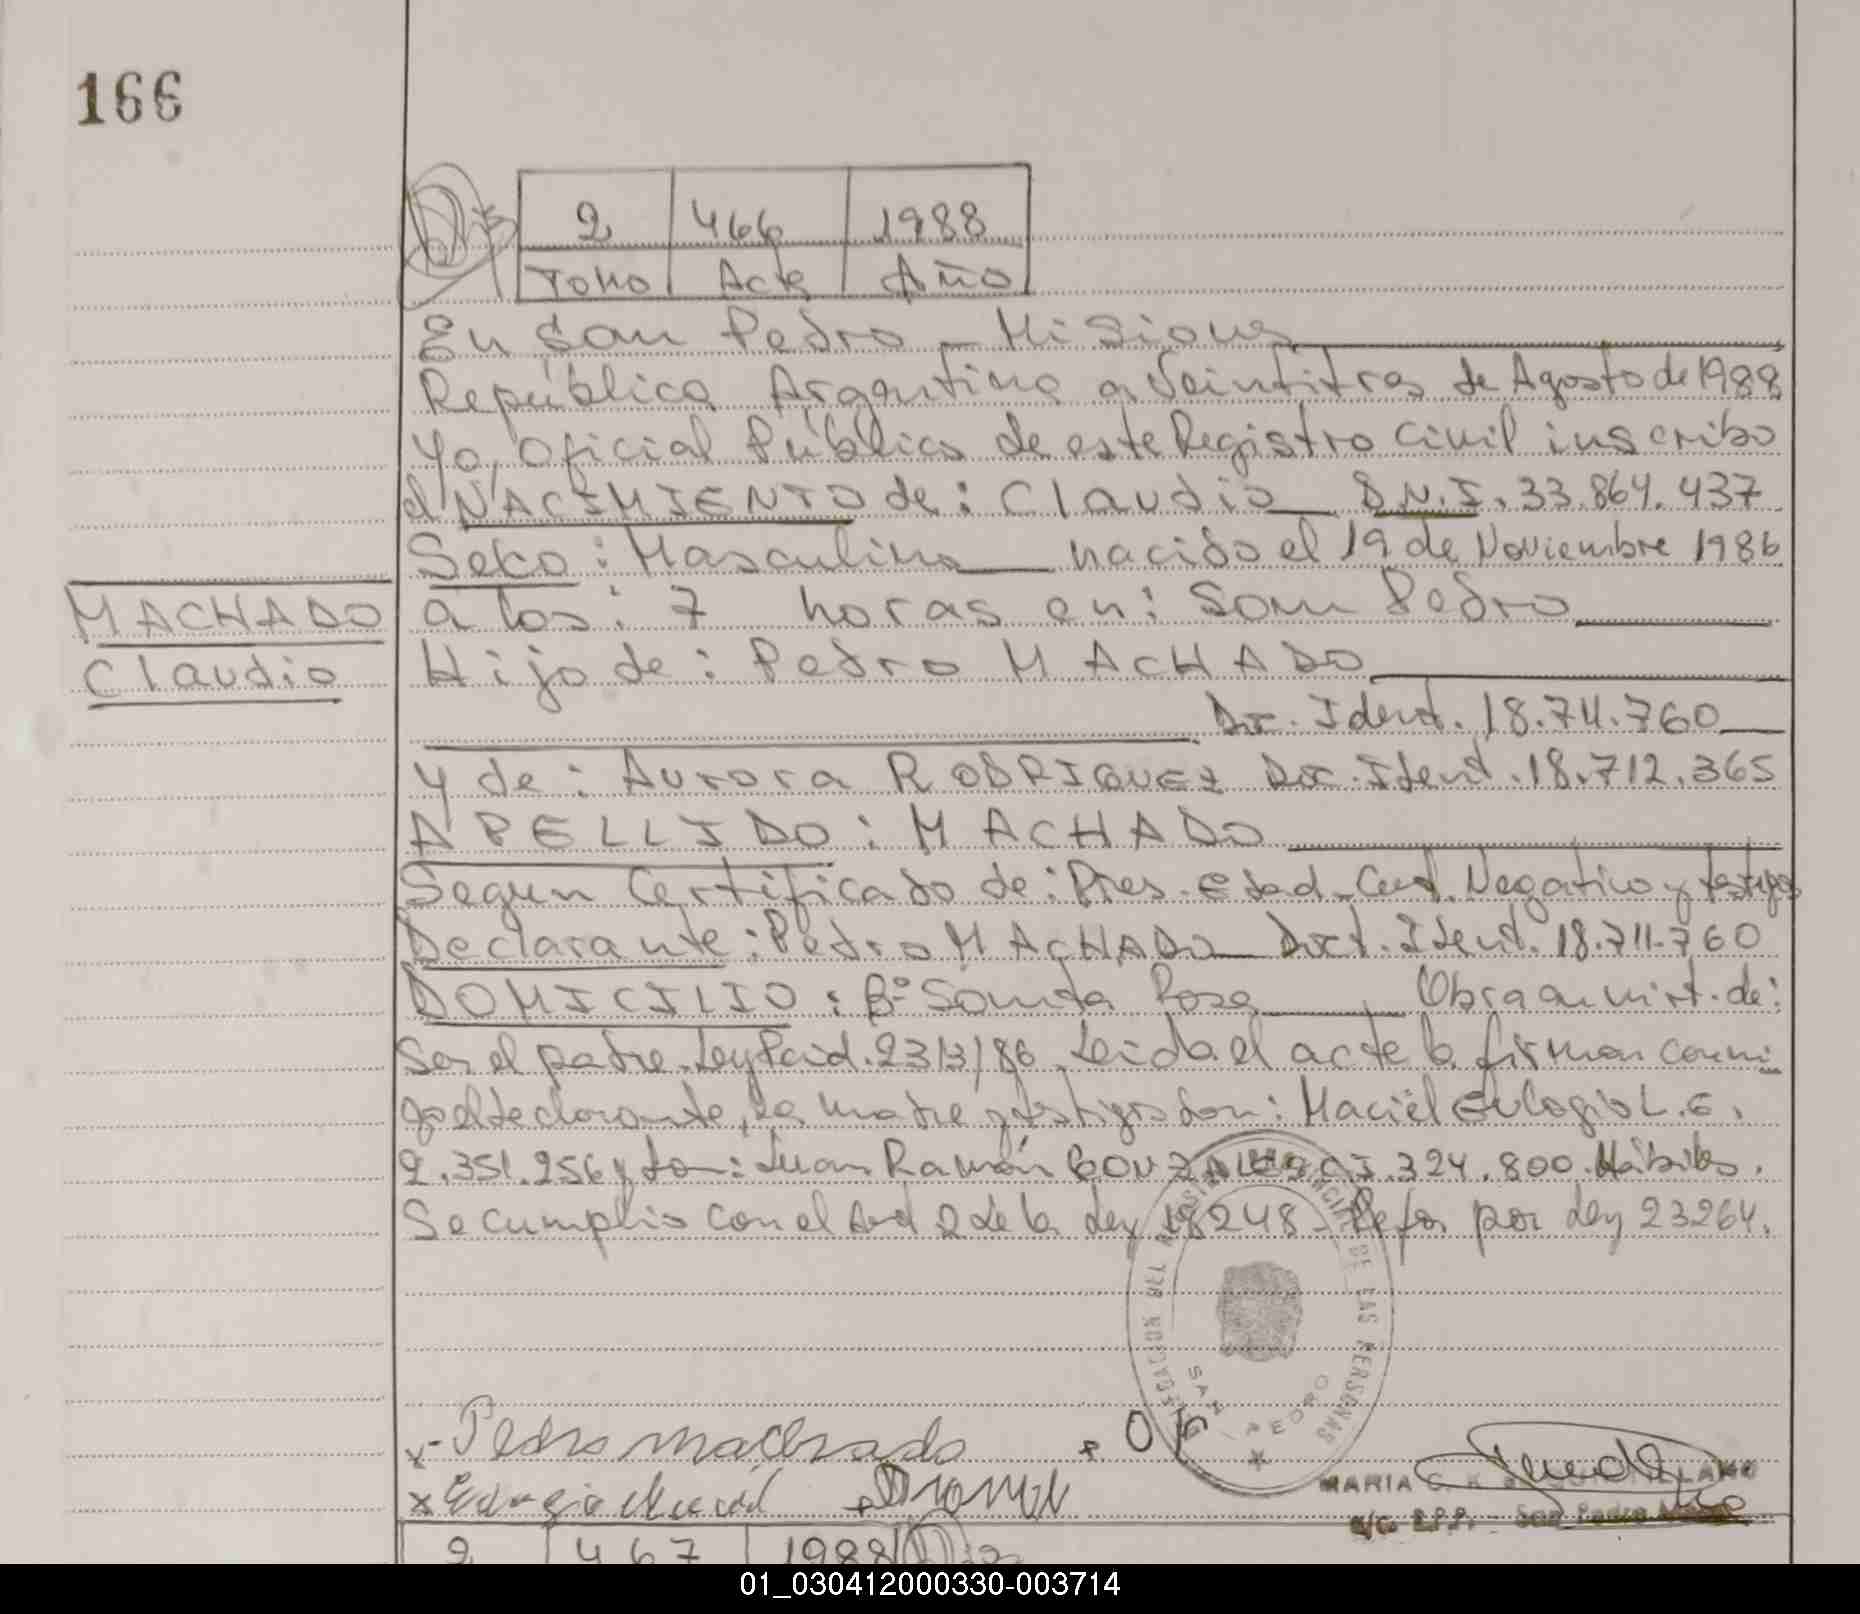 166
2 466 1988
Tomo Acta Año
En San Pedro - Misiones
República Argentina a Veintitres de Agosto de 1988
Yo, Oficial Público de este Registro Civil inscribo
el NACIMIENTO de: Claudio D.N.I. 33.864.437
Sexo: Masculino nacido el 19 de Noviembre 1986
MACHADO
a las: 7 horas en: San Pedro
Claudio
Hijo de: Pedro MACHADO
Doc. Ident. 18.711.760
y de: Aurora RODRIGUEZ Doc. Ident. 18.712.365
APELLIDO: MACHADO
Segun Certificado de: Pres. edad - Cert. Negativo y testigos
Declarante: Pedro MACHADO Doct. Ident. 18.711.760
DOMICILIO: Bº Santa Rosa Obra en virt. de:
Ser el padre. Ley Pcial. 2313/86. Leida el acta la firman conmi
go el declarante, la madre y testigos don: Maciel Eulogio L.E.
2.351.256 y don: Juan Ramón GONZALES C.I. 324.800. Hábiles.
Se cumplio con el Art 2 de la Ley 18248 - Refor por Ley 23264.
DELEGACION DEL REGISTRO PROVINCIAL DE LAS PERSONAS
SAN PEDRO
x- Pedro machado
MARIA
a/c. R.P.P. - San Pedro
2 467 1988
01_030412000330-003714